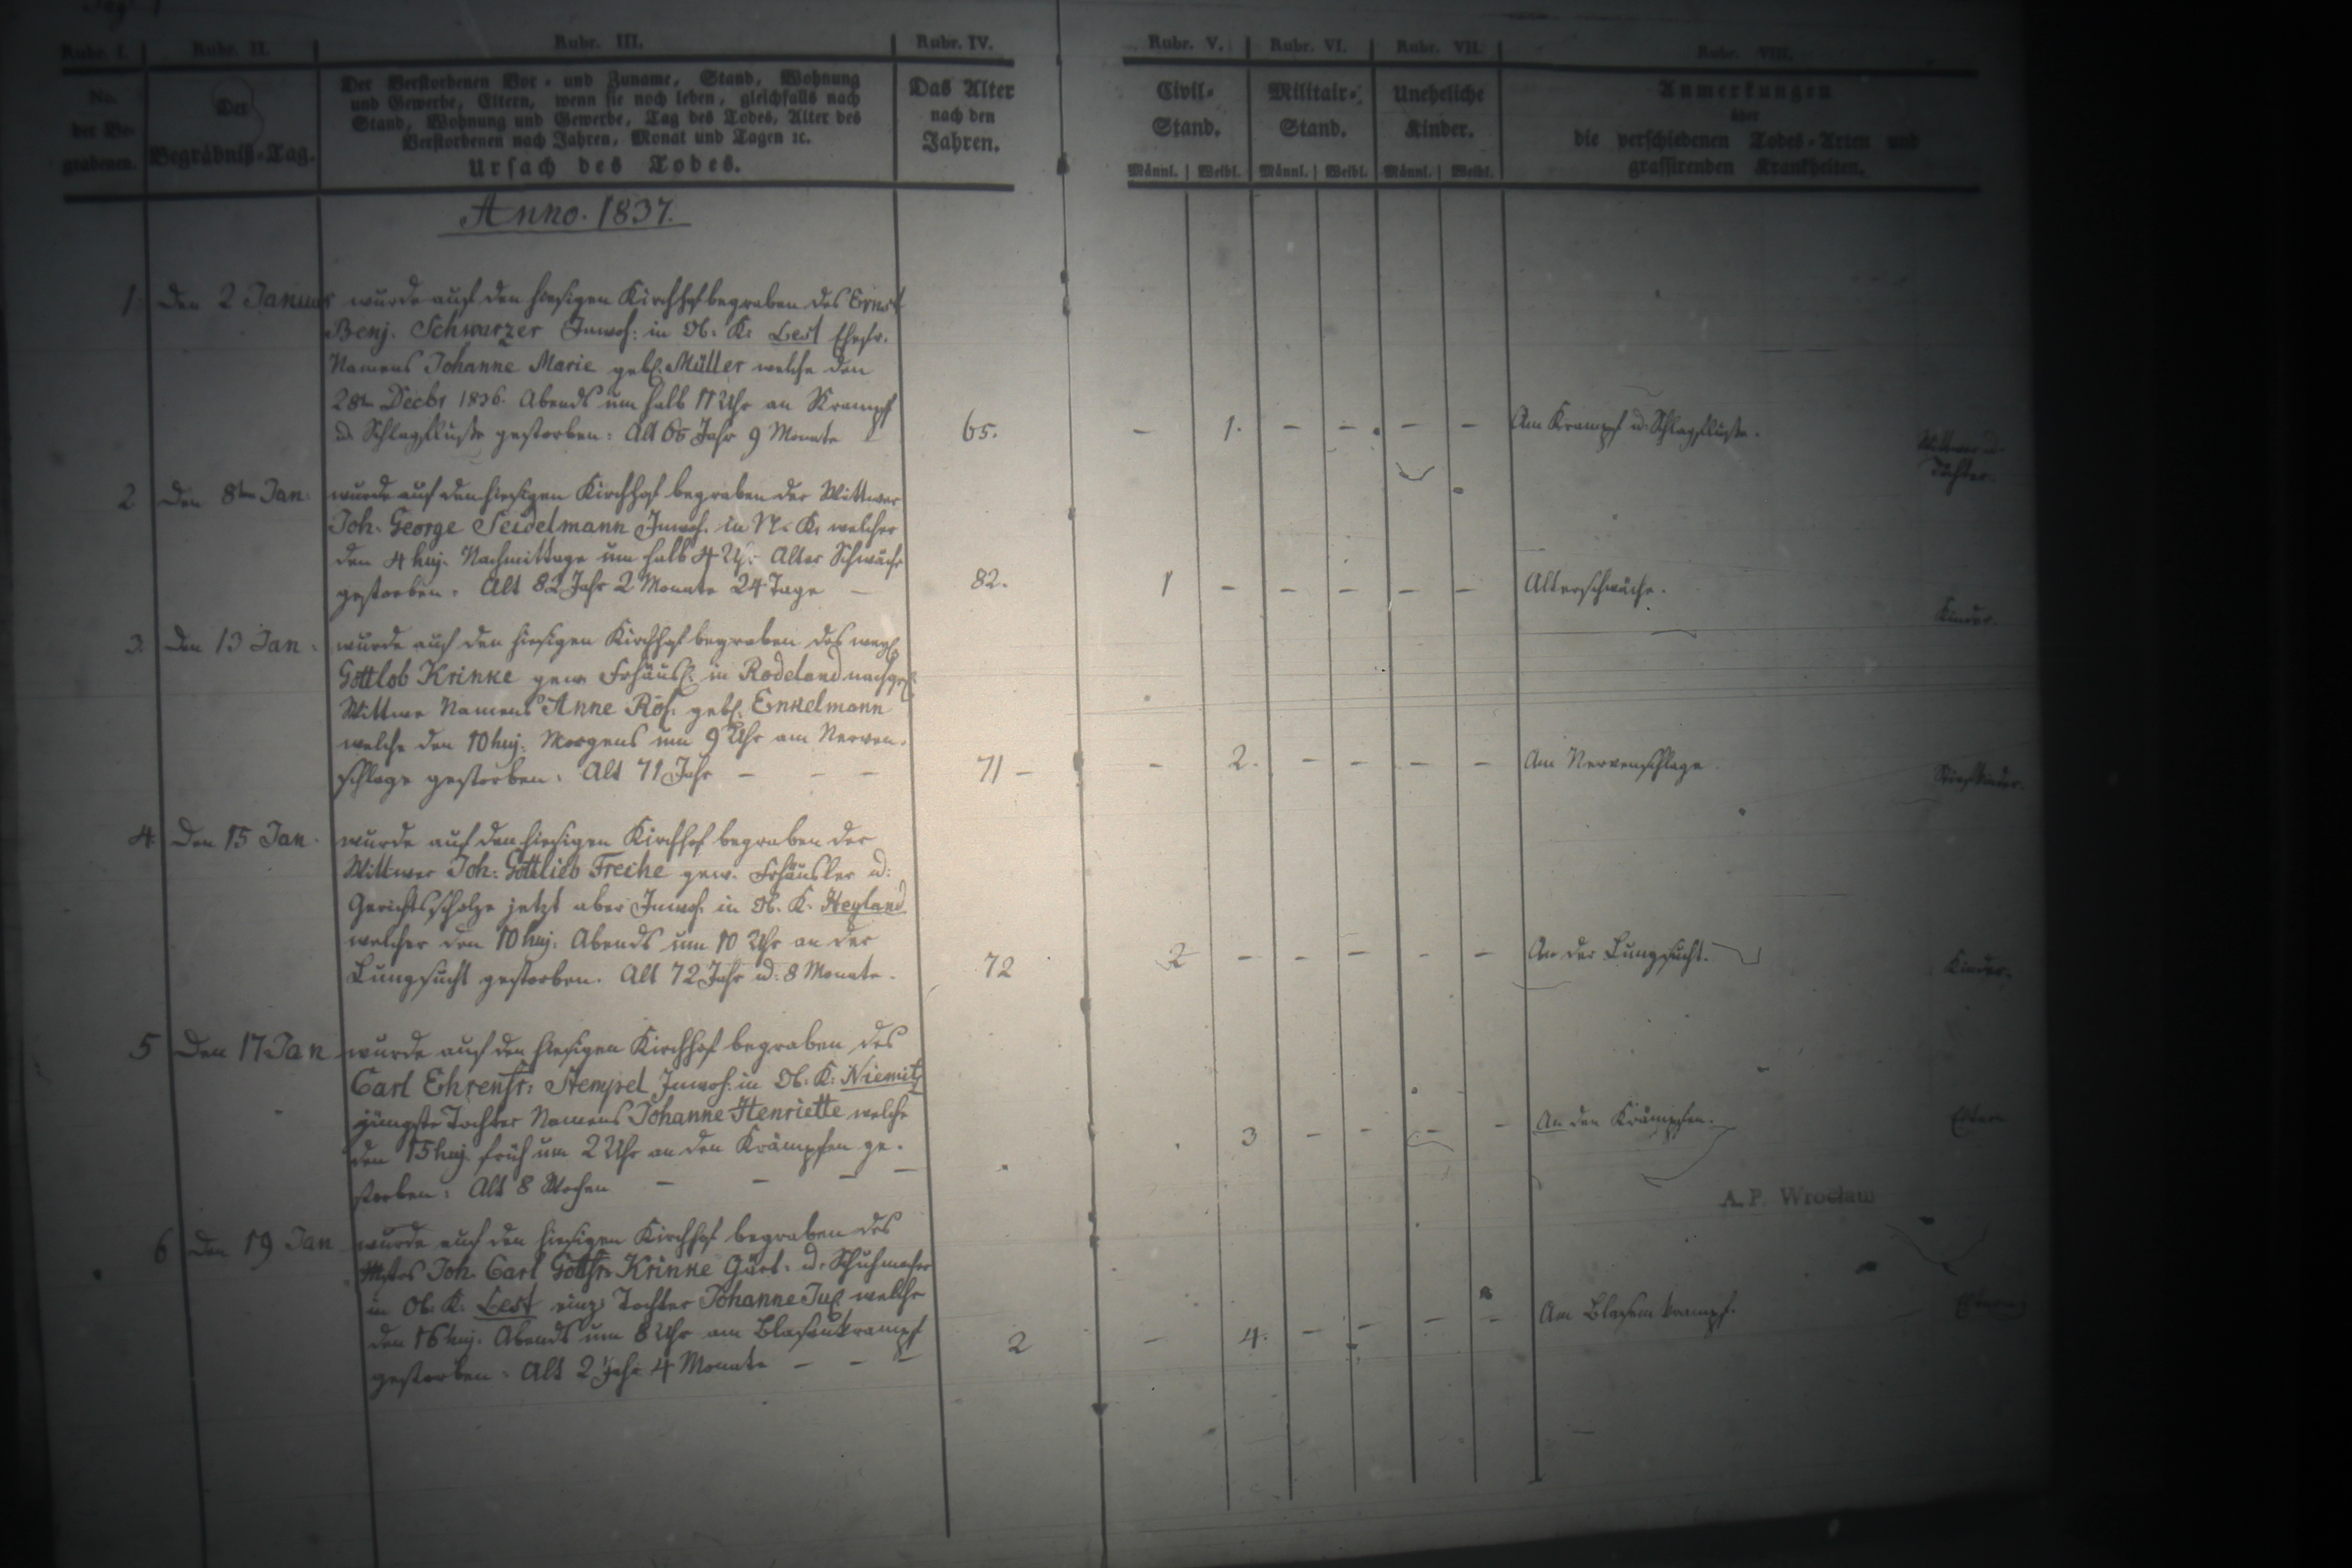 Rubr. I. Rubr. II. Rubr. III. Rubr. IV. Rubr. V. Rubr. VI. Rubr. VII. Rubr. VIII.
No. der Be- grabenen.
Der Begräbniß-Tag.
Der Verstorbenen Vor- und Zuname, Stand, Wohnung
und Gewerbe, Eltern, wenn sie noch leben, gleichfalls nach
Stand, Wohnung und Gewerbe, Tag des Todes, Alter des
Verstorbenen nach Jahren, Monat und Tagen ꝛc.
Ursach des Todes.
Das Alter
nach den
Jahren.
Civil-
Stand.
Männl. | Weibl.
Militair-
Stand.
Männl. | Weibl.
Uneheliche
Kinder.
Männl. | Weibl.
Anmerkungen
über
die verschiedenen Todes-Arten und
grassirenden Krankheiten.
Anno. 1837.
1. Den 2 Januar wurde auf den hiesigen Kirchhof begraben des Ernst
Benj. Schwarzer Inwoh: in Ob: K: Lest Ehefr.
Namens Johanne Marie geb. Müller welche den
28ten Decbr 1836. Abends um halb 11 Uhr an Krampf
u. Schlagflusse gestorben: Alt 65 Jahr 9 Monate 65. - 1. - - - - Am Krampf u. Schlagflusse.
Wittwer u.
Töchter.
2 Den 8ten Jan. wurde auf den hiesigen Kirchhof begraben der Wittwer
Joh. George Seidelmann Inwoh. in N. K. welcher
den 4 huj. Nachmittags um halb 4 Uhr Alter Schwäche
gestorben: Alt 82 Jahr 2 Monate 24 Tage - 82. 1 - - - - - Alterschwäche.
Kinder.
3. Den 13 Jan. wurde auf den hiesigen Kirchhof begraben des
Gottlob Krinke gew. Frhäusl. in Rodeland nachgel.
Wittwe Namens Anne Ros. geb. Enkelmann
welche den 10 huj. Morgens um 9 Uhr am Nerven-
schlage gestorben: Alt 71 Jahr - - - 71 - - 2. - - - - Am Nervenschlage.
4. Den 15 Jan. wurde auf den hiesigen Kirchhof begraben der
Wittwer Joh: Gottlieb Freche gew. Frhäusler u:
Gerichtsscholze jetzt aber Inwoh. in Ob. K. Heyland
welcher den 10 huj: Abends um 10 Uhr an der
Lungsucht gestorben. Alt 72 Jahr u: 8 Monate. 72 2 - - - - - An der Lungsucht.
Kinder.
5 Den 17 Jan wurde auf den hiesigen Kirchhof begraben des
Carl Ehrenfr: Stempel Inwoh: in Ob: K: Niemitz
jüngste Tochter Namens Johanne Henriette welche
den 15 huj. früh um 2 Uhr an den Krämpfen ge-
storben: Alt 8 Wochen - - - - 3 - - - - An den Krämpfen.
Eltern
A. P. Wrocław
6 Den 19 Jan wurde auf den hiesigen Kirchhof begraben des
Mstrs Joh. Carl Gottfr. Krinke Gärt. u. Schuhmacher
in Ob. K. Lest einz. Tochter Johanne Jul welche
den 16 huj. Abends um 8 Uhr am Blasenkrampf
gestorben: Alt 2 Jahr 4 Monate - - - 2 - 4. - - - - Am Blasenkrampf.